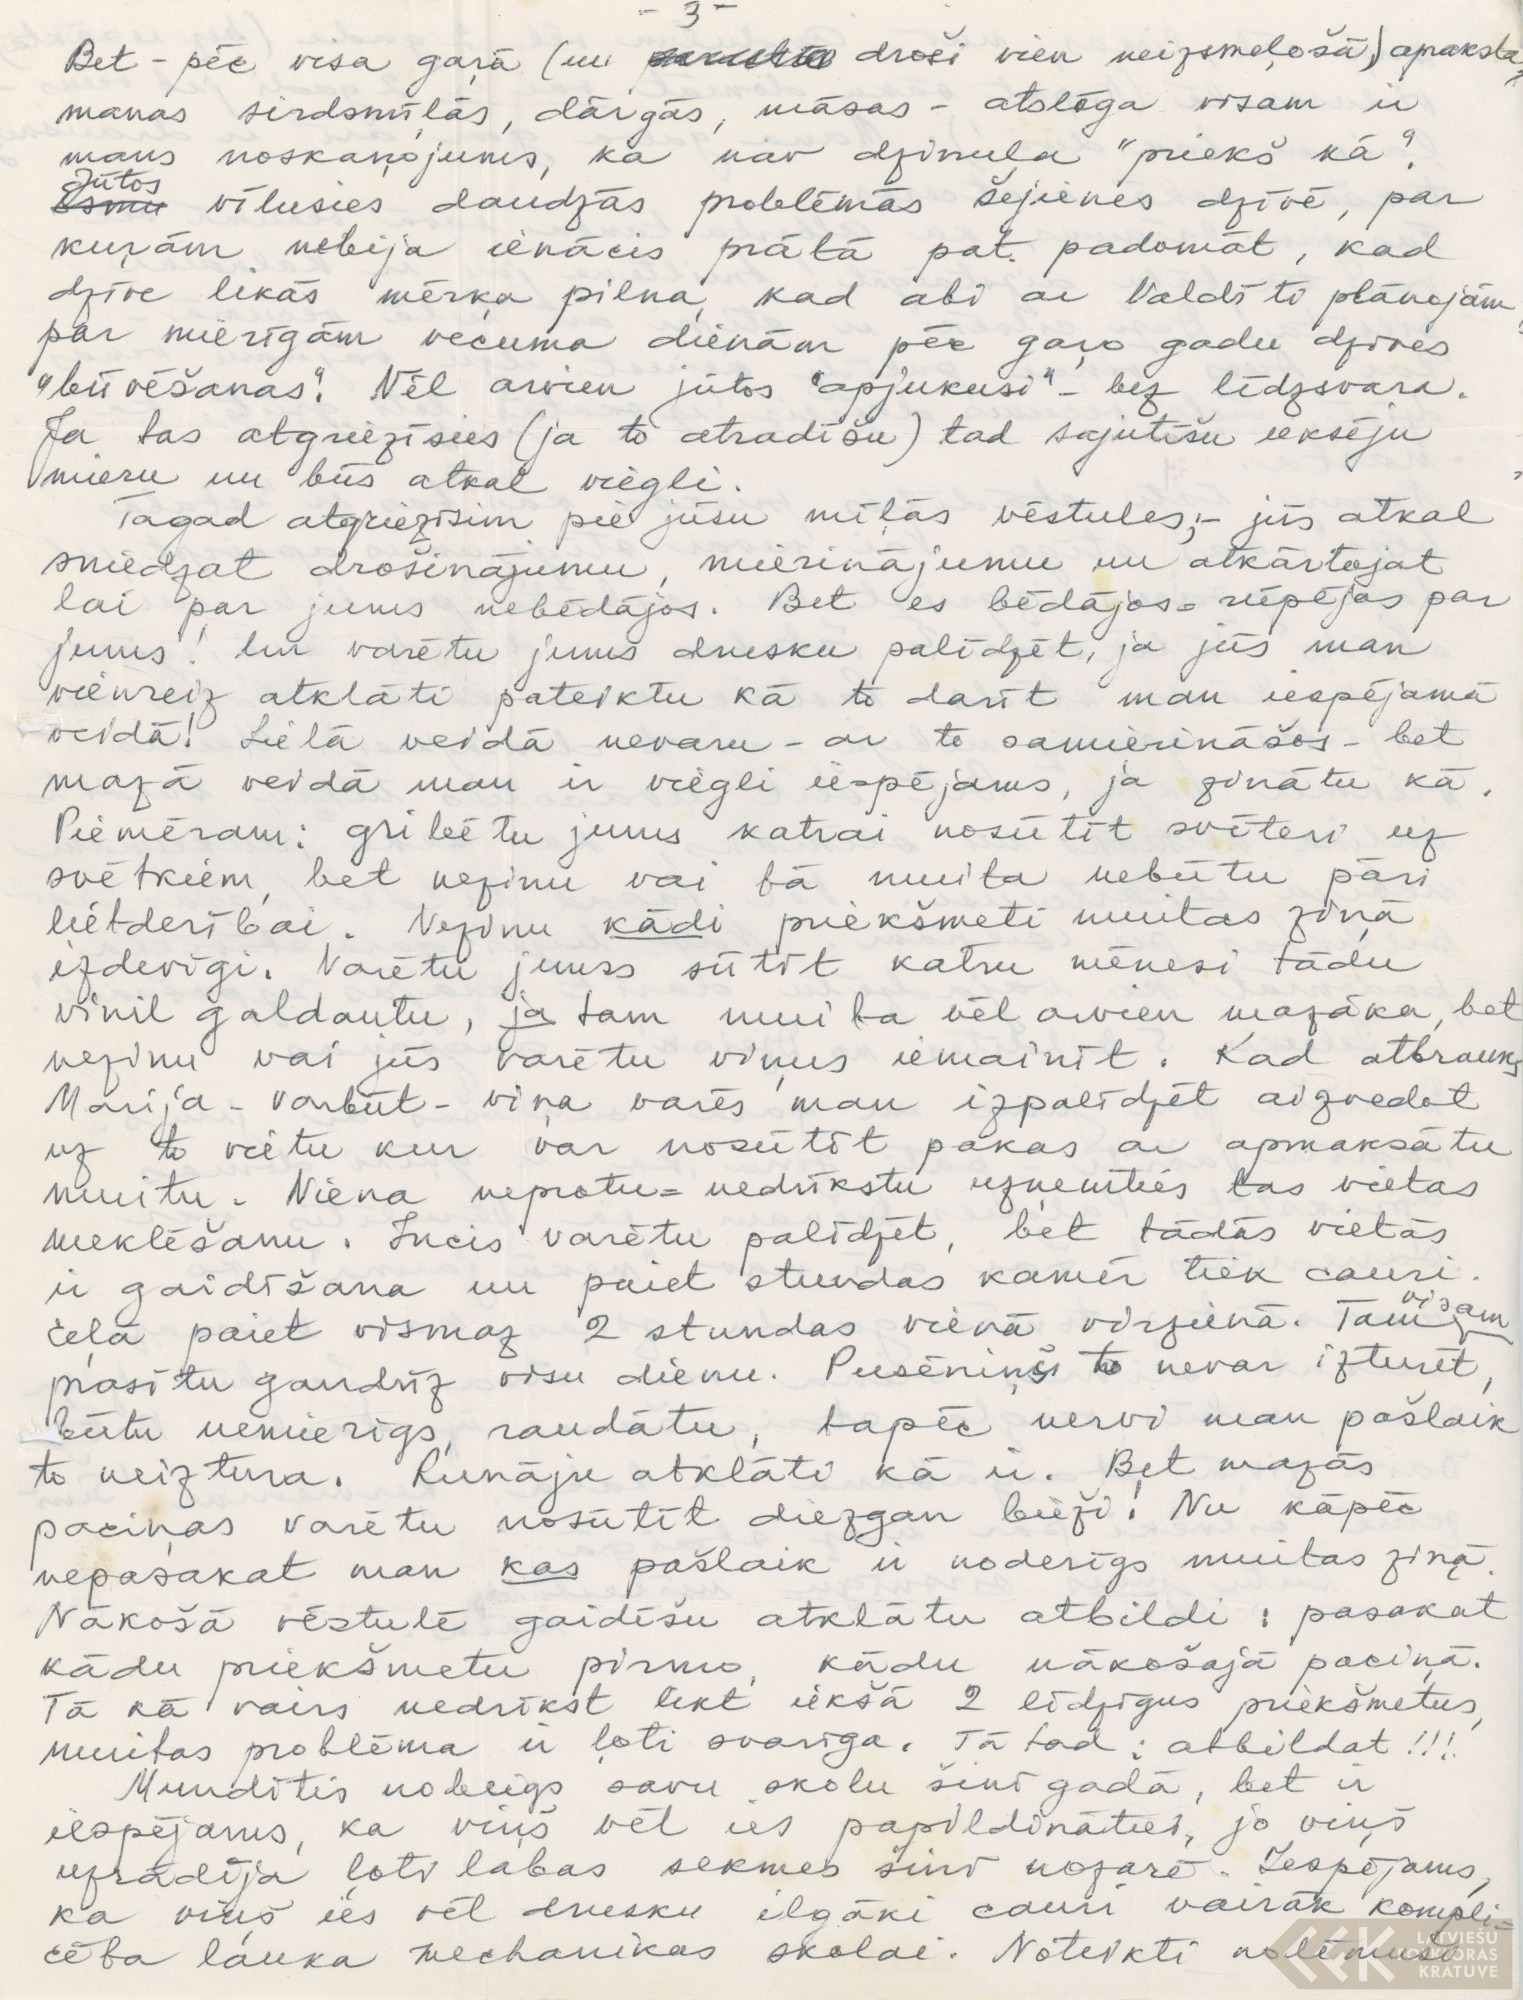 - 3 -
Bet - pēc visa gaŗā (un droši vien neizsmeļošā,) apraksta,
manas sirdsmīļās, dārgās, māsas - atslēga visam ir
mans noskaņojums, ka nav dzinuļa "priekš kā".
Jūtos
Esmu vīlusies daudzās problēmās šejienes dzīvē, par
kuŗām nebija ienācis prātā pat padomāt, kad
dzīve likās mērķa pilna, kad abi ar Valdīti plānojām
par mierīgām vecuma dienām pēc gaŗo gadu dzīves
"būvēšanas". Vēl arvien jūtos "apjukusi" - bez līdzsvara.
Ja tas atgriezīsies (ja to atradīšu) tad sajutīšu iekšēju
mieru un būs atkal viegli.
Tagad atgriezīsim pie jūsu mīļās vēstules; - jūs atkal
sniedzat drošinājumu, mierinājumu un atkārtojat
lai par jums nebēdājos. Bet es bēdājos = rūpējos par
jums! Un varētu jums drusku palīdzēt, ja jūs man
vienreiz atklāti pateiktu kā to darīt man iespējamā
veidā! Lielā veidā nevaru - ar to samierināšos - bet
mazā veidā man ir viegli iespējams, ja zinātu kā.
Piemēram: gribētu jums katrai nosūtīt svēteri uz
svētkiem, bet nezinu vai tā muita nebūtu pāri
lietderībai. Nezinu kādi priekšmeti muitas ziņā
izdevīgi. Varētu jums sūtīt katru mēnesi tādu
vinil galdautu, ja tam muita vēl arvien mazāka, bet
nezinu vai jūs varētu viņus iemainīt. Kad atbrauks
Marija - varbūt - viņa varēs man izpalīdzēt aizvedot
uz to vietu kur var nosūtīt pakas ar apmaksātu
muitu. Viena neprotu = nedrīkstu uzņemties tas vietas
meklēšanu. Incis varētu palīdzēt, bet tādās vietās
ir gaidīšana un paiet stundas kamēr tiek cauri.
Ceļā paiet vismaz 2 stundas vienā virzienā. Tam visam
prasītu gandrīz visu dienu. Pusēniņš to nevar izturēt,
būtu nemierīgs, raudātu, tapēc nervi man pašlaik
to neiztura. Runāju atklāti kā ir. Bet mazās
paciņas varētu nosūtīt diezgan bieži! Nu kāpēc
nepasakat man kas pašlaik ir noderīgs muitas ziņā.
Nākošā vēstulē gaidīšu atklātu atbildi: pasakat
kādu priekšmetu pirmo, kādu nākošajā paciņā.
Tā kā vairs nedrīkst likt iekšā 2 līdzīgus priekšmetus,
muitas problēma ir ļoti svarīga. Tā tad: atbildat!!!
Mundītis nobeigs savu skolu šinī gadā, bet ir
iespējams, ka viņš vēl ies papildināties, jo viņš
uzrādīja ļoti labas sekmes šinī nozarē. Iespējams,
ka viņš ies vēl drusku ilgāki cauri vairāk kompli-
cēta lauka mechanikas skolai. Noteikti nolēmuši
LATVIEŠU
FOLKLORAS
KRĀTUVE